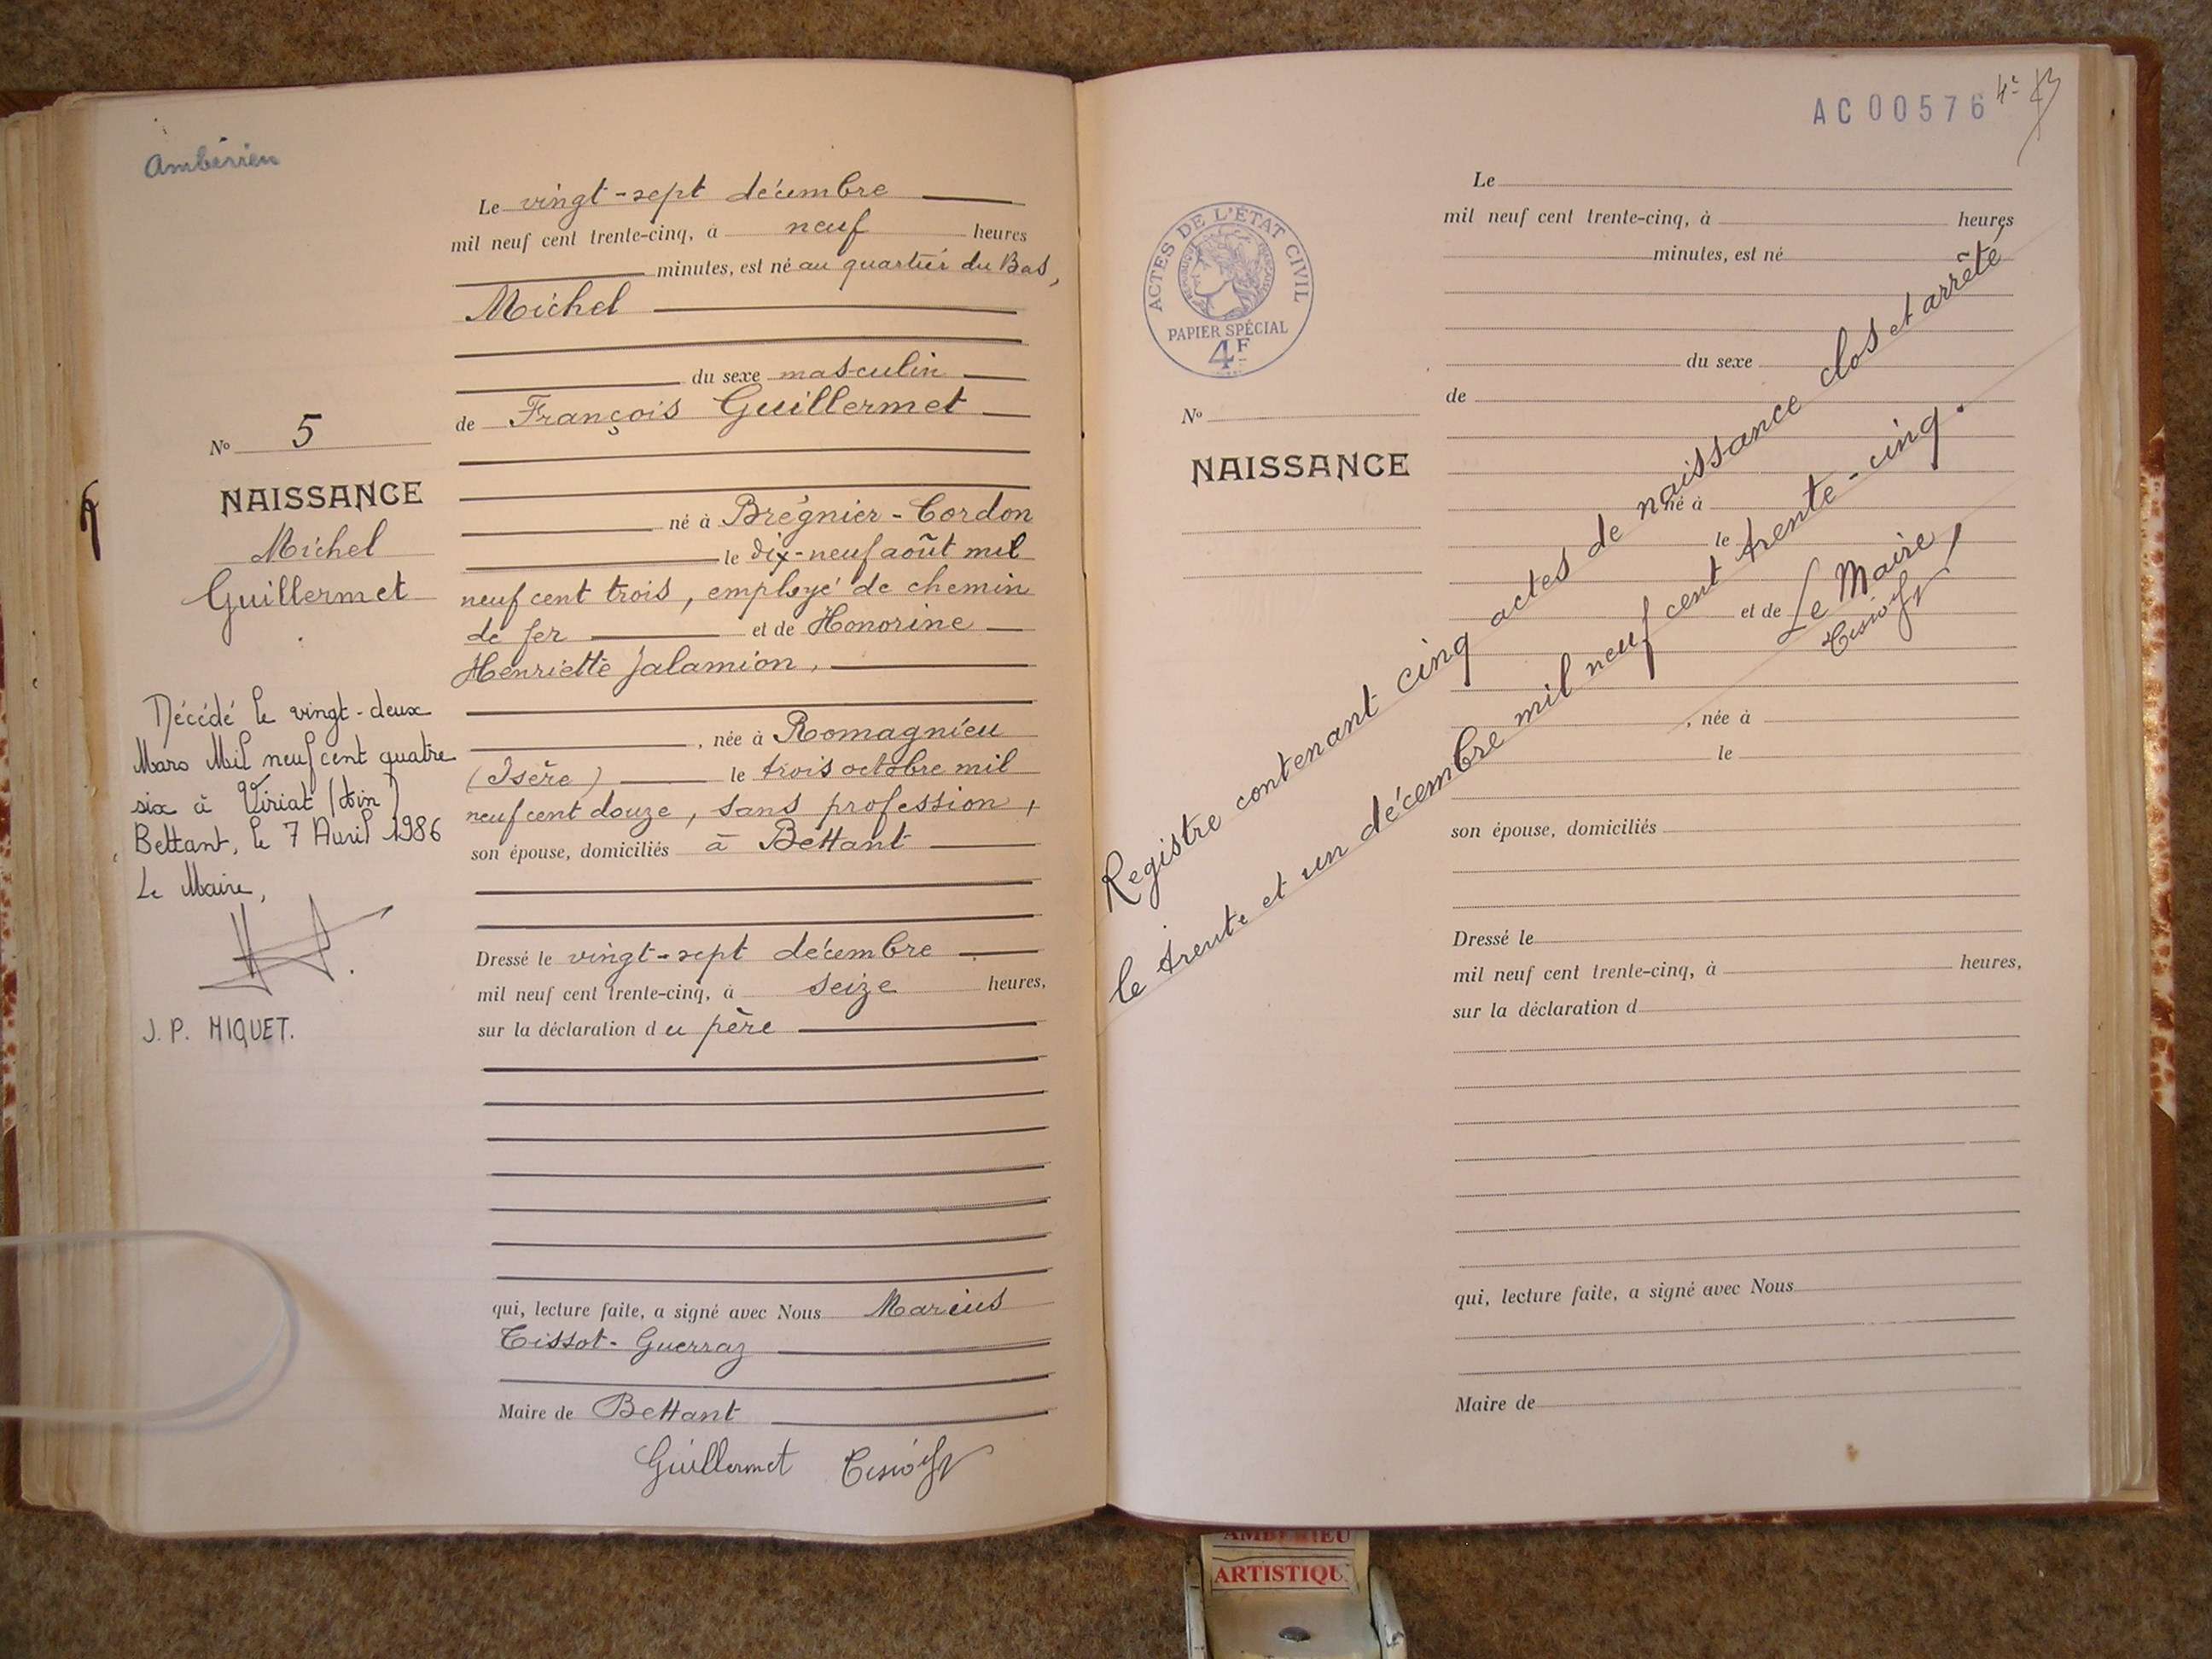 Ambérieu
Le vingt-sept décembre
mil neuf cent trente-cinq, à neuf heures
minutes, est né au quartier du Bas,
Michel
du sexe masculin
de François Guillermet
né à Brégnier-Cordon
le dix-neuf août mil
neuf cent trois, employé de chemin
de fer et de Honorine
Henriette Jalamion,
, née à Romagnieu
(Isère) le trois octobre mil
neuf cent douze, sans profession,
son épouse, domiciliés à Bettant
Dressé le vingt-sept décembre
mil neuf cent trente-cinq, à seize heures,
sur la déclaration du père
qui, lecture faite, a signé avec Nous Marius
Tissot-Guerraz
Maire de Bettant
Guillermet
No 5
NAISSANCE
Michel
Guillermet
Décédé le vingt-deux
Mars Mil neuf cent quatre
six à Viriat (Ain)
Bettant, le 7 Avril 1986
Le Maire,
J. P. HIQUET.
AC 00576
ACTES DE L'ÉTAT CIVIL
RÉPUBLIQUE FRANÇAISE
PAPIER SPÉCIAL
4F
No
NAISSANCE
Le
mil neuf cent trente-cinq, à heures
minutes, est né
du sexe
de
né à
le
et de
, née à
le
son épouse, domiciliés
Dressé le
mil neuf cent trente-cinq, à heures,
sur la déclaration d
qui, lecture faite, a signé avec Nous
Maire de
Registre contenant cinq actes de naissance clos et arrêté
le trente et un décembre mil neuf cent trente-cinq.
Le Maire,
AMBERIEU
ARTISTIQU